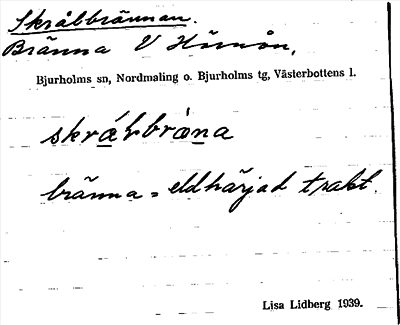 Skråbbrännan.
Bränna V Hörnån,
Bjurholms sn, Nordmaling o. Bjurholms tg, Västerbottens l.
bränna = eldhärjad trakt.
Lisa Lidberg 1939.